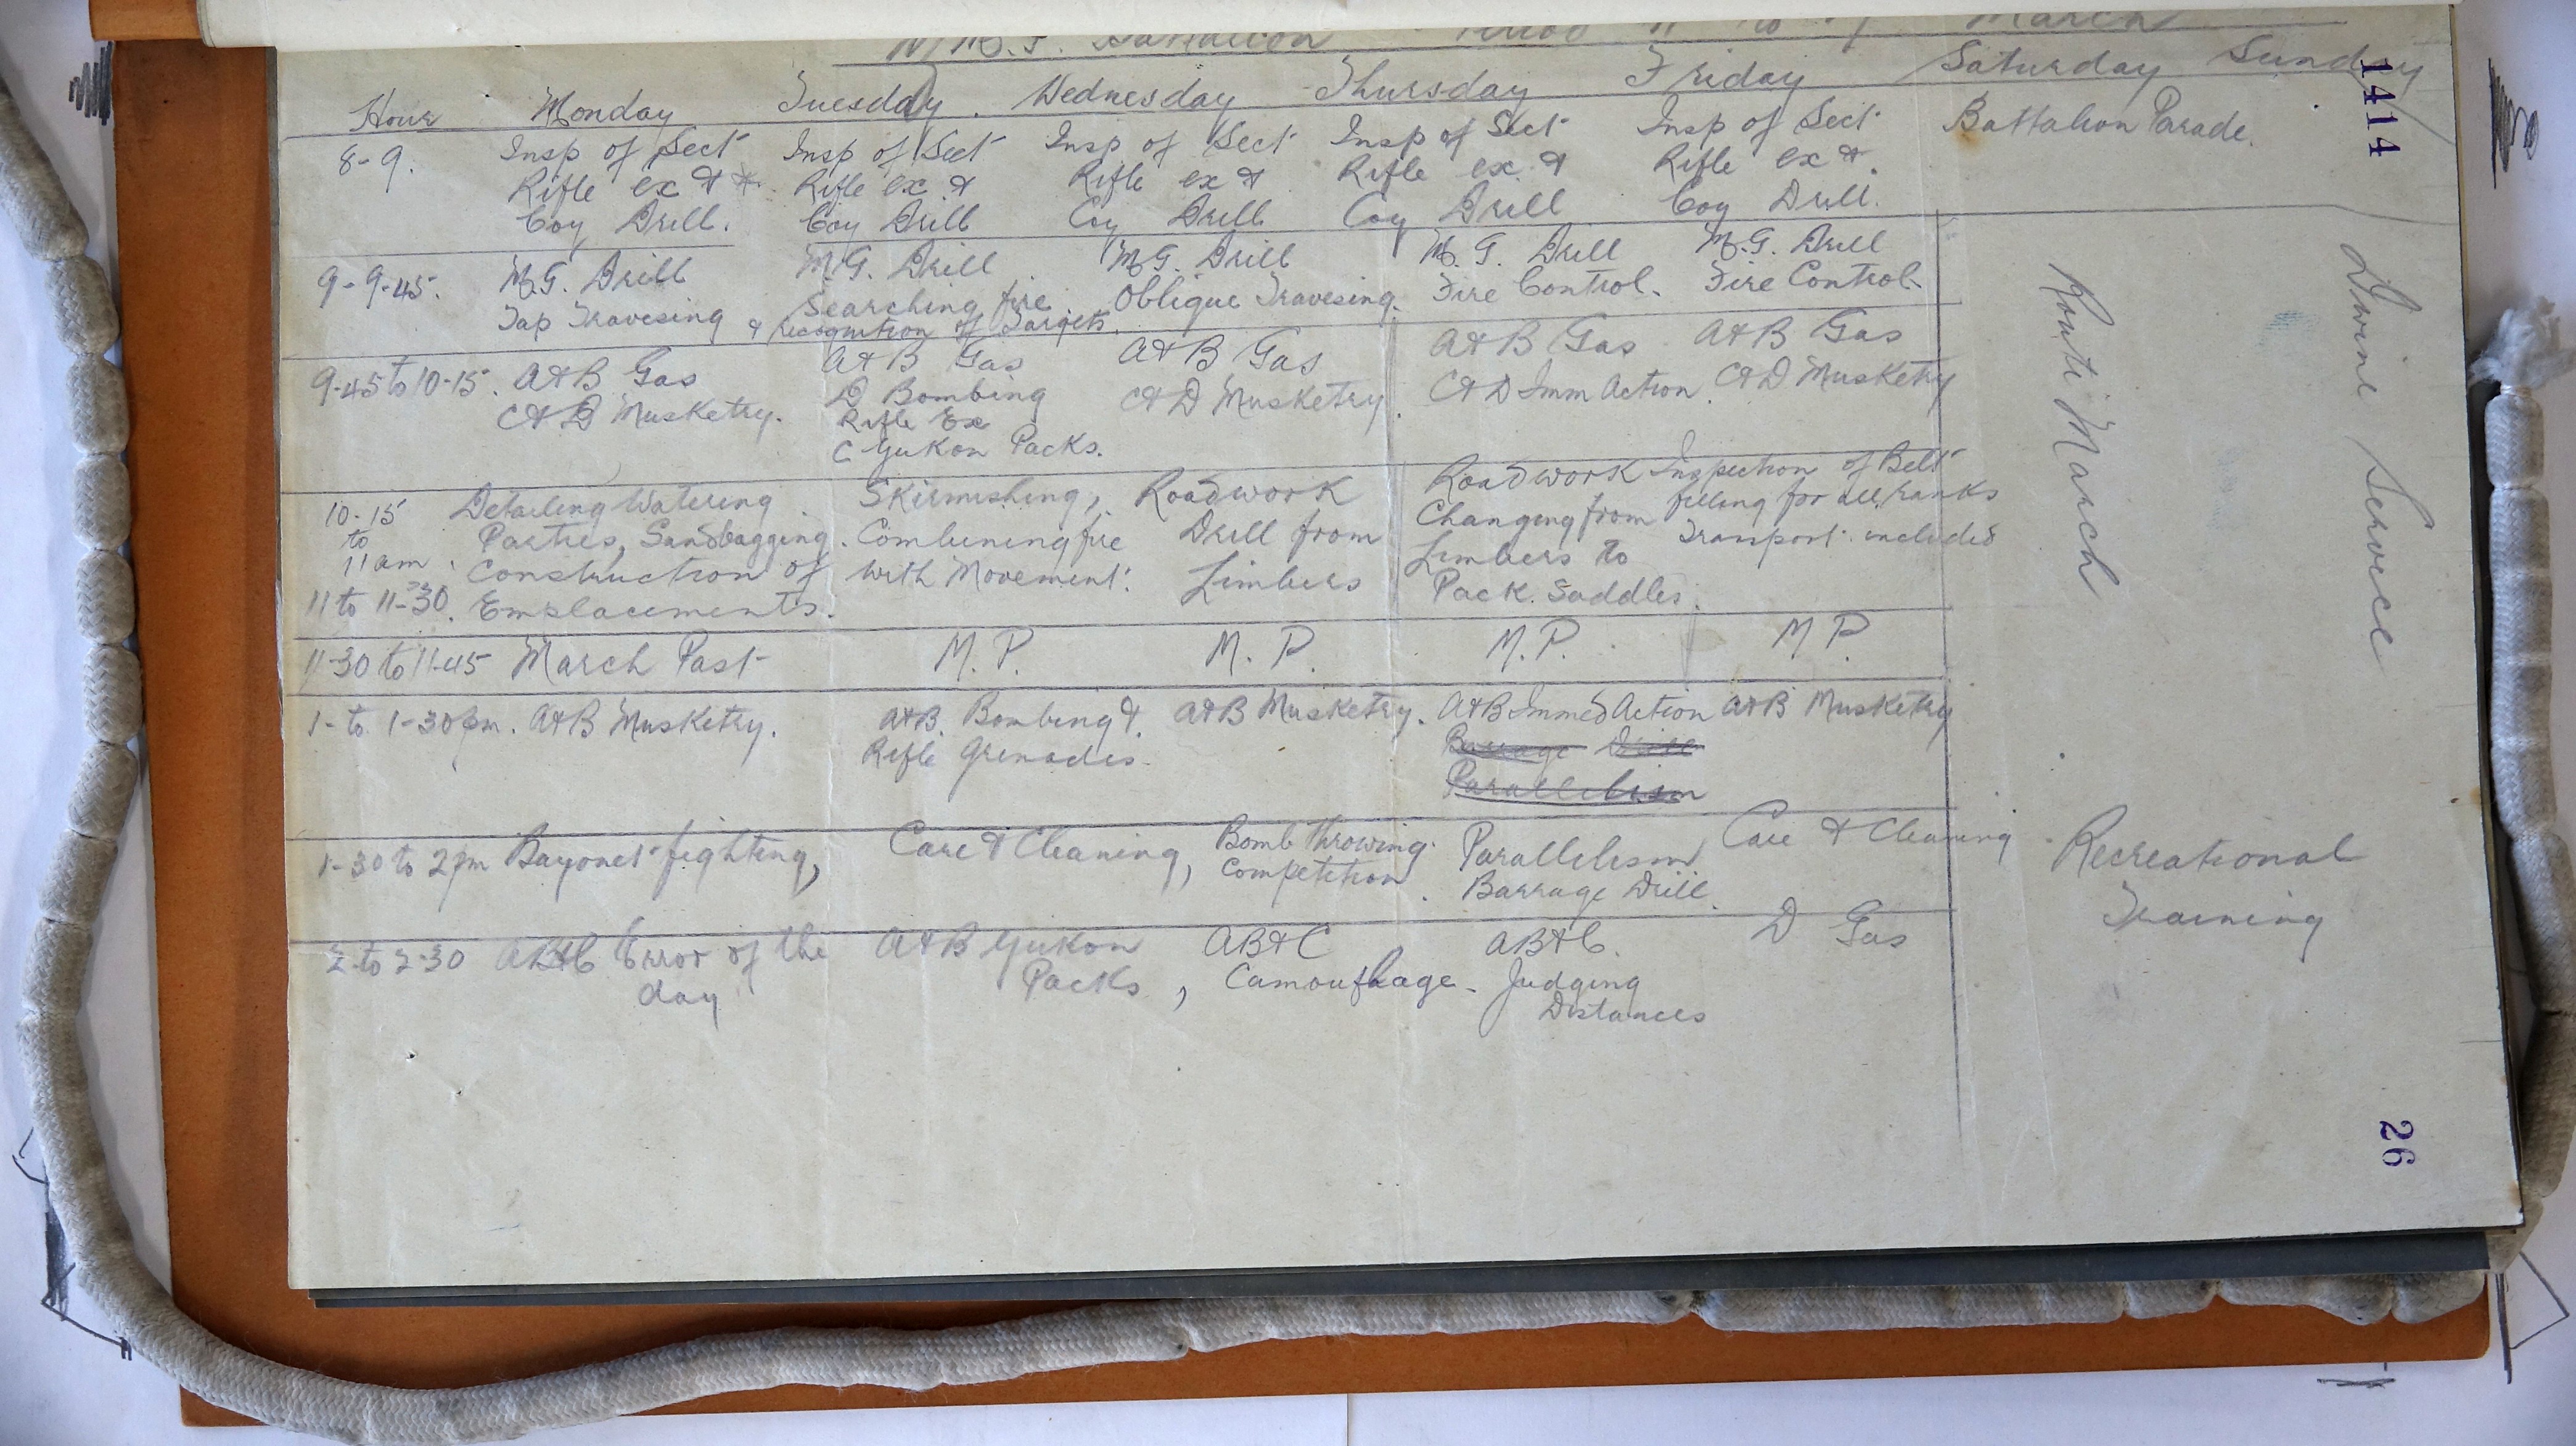 M.G. Battalion March
Hour Monday Tuesday. Wednesday Thursday Friday Saturday Sunday
8-9. Insp of Sect Insp of Sect Insp of Sect Insp of Sect Insp of Sect Battalion Parade.
Rifle ex & Rifle ex & Rifle ex & Rifle ex. & Rifle ex &.
Coy Drill. Coy Drill Coy Drill Coy Drill Coy Drill.
9-9-45. M.G. Drill M.G. Drill M.G. Drill M.G. Drill M.G. Drill
Tap Travesing Searching fire Oblique Travesing. Fire Control. Fire Control.
& Recognition of Targets.
9-45 to 10-15. A&B Gas A&B Gas A&B Gas A&B Gas A&B Gas
C&D Musketry. D Bombing C&D Musketry. C&D Imm Action. C&D Musketry
Rifle Ex
C Yukon Packs.
10-15 Detailing Watering Skirmishing, Roadwork Roadwork Inspection of Belt
to Parties, Sandbagging. Combining fire Drill from Changing from filling for all ranks
11am. Construction of with Movement. Limbers Limbers to Transport included
11 to 11-30. Emplacements. Pack. Saddles.
11-30 to 11-45 March Past M.P. M.P. M.P. M.P.
1- to 1-30pm. A&B Musketry. A&B. Bombing & A&B Musketry. A&B Immed Action A&B Musketry
Rifle Grenades. Barrage Drill
Parallelism
1-30 to 2pm Bayonet fighting, Care & Cleaning, Bomb Throwing Parallelism Care & Cleaning
Competition. Barrage Drill.
2 to 2-30 AB&C Error of the A&B Yukon AB&C AB&C. D Gas
day Packs, Camouflage. Judging
Distances
Route March
Recreational
Training
Divine Service
1414
26